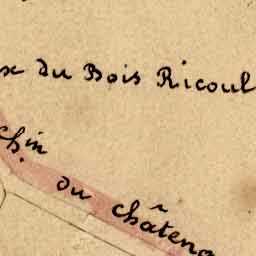 x du Bois Ricoul
Ch.in du châtena